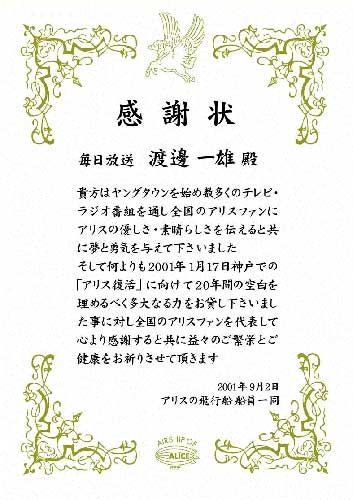 感謝状
毎日放送 渡邊一雄殿
貴方はヤングタウンを始め数多くのテレビ・
ラジオ番組を通し全国のアリスファンに
アリスの優しさ・素晴らしさを伝えると共
に夢と勇気を与えて下さいました
そして何よりも2001年1月17日神戸での
「アリス復活」に向けて20年間の空白を
埋めるべく多大なる力をお貸し下さいまし
た事に対し全国のアリスファンを代表して
心より感謝すると共に益々のご繁栄とご
健康をお祈りさせて頂きます
2001年9月2日
アリスの飛行船 船員一同
AIRSHIP OF
ALICE